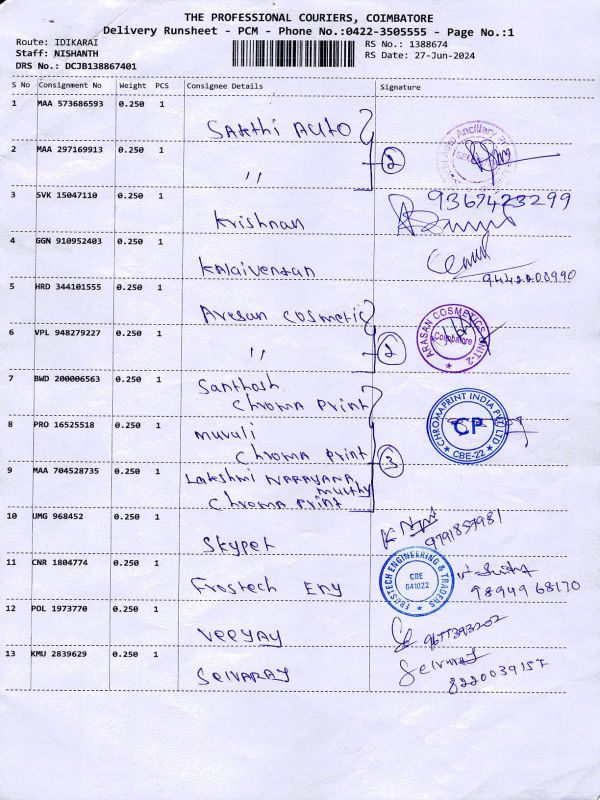 THE PROFESSIONAL COURIERS, COIMBATORE
Delivery Runsheet - PCM - Phone No.:0422-3505555 - Page No.:1
Route: IDIKARAI
RS No.: 1388674
Staff: NISHANTH
RS Date: 27-Jun-2024
DRS No.: DCJB138867401
S No Consignment No Weight PCS Consignee Details Signature
1 MAA 573686593 0.250 1
Sakthi Auto
2 MAA 297169913 0.250 1
" 2
3 SVK 15047110 0.250 1
9367423299
Krishnan
4 GGN 910952403 0.250 1
Kalaivensan
9442208990
5 HRD 344101555 0.250 1
Aresan cosmetic
ARASAN COSMETICS UNIT-2
Coimbatore
6 VPL 948279227 0.250 1
" 2
7 BWD 200006563 0.250 1
Santhosh
Chroma Print
CHROMAPRINT INDIA PVT LTD
CP
CBE-22
8 PRO 16525518 0.250 1
Murali
Chroma Print
3
9 MAA 704528735 0.250 1
Lakshmi Narayana
Murthy
Chroma Print
10 UMG 968452 0.250 1
9791859981
Skypet
11 CNR 1804774 0.250 1
FROSTECH ENGINEERING & TRADERS
CBE
641022
Frostech Eng
98949 68170
12 POL 1973770 0.250 1
Veejay
9677393202
13 KMU 2839629 0.250 1
Selvaraj
Selvaraj
8220039157